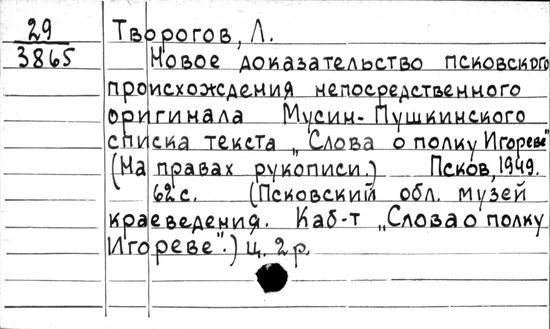 29 Творогов, Л.
3865 Новое доказательство псковского
происхождения непосредственного
оригинала Мусин-Пушкинского
списка текста „Слова о полку Игореве"
(На правах рукописи.) Псков, 1949.
62 с. (Псковский обл. музей
краеведения. Каб-т „Слова о полку
Игореве".) ц. 2 р.